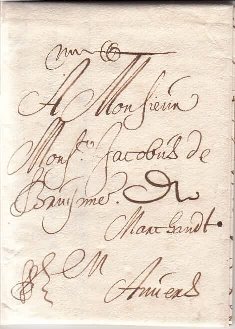 A Monsieur
Monsr. Jacobus de
Bruijne.
Marchandt.
M
Anvers